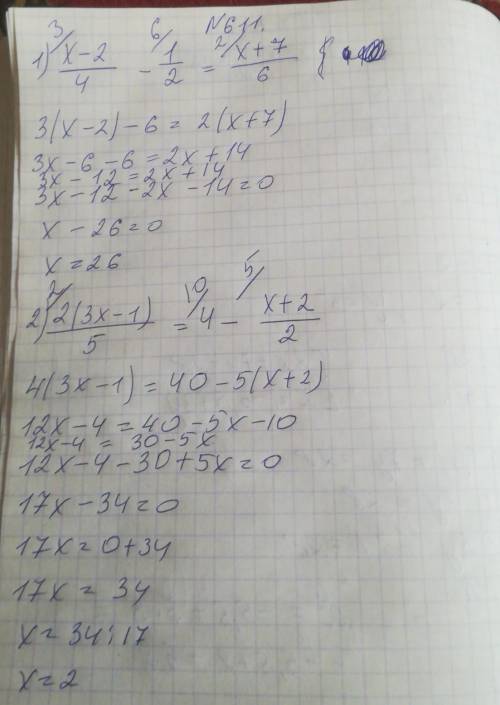 N631.
1) 3/ (x-2)/4 - 6/ 1/2 = 2/ (x+7)/6 {
3(x-2)-6 = 2(x+7)
3x-6-6=2x+14
3x-12=2x+14
3x-12-2x-14=0
x-26=0
x=26
2) 2/ 2(3x-1)/5 = 10/ 4 - 5/ (x+2)/2
4(3x-1)=40-5(x+2)
12x-4=40-5x-10
12x-4 = 30-5x
12x-4-30+5x=0
17x-34=0
17x=0+34
17x = 34
x=34:17
x=2